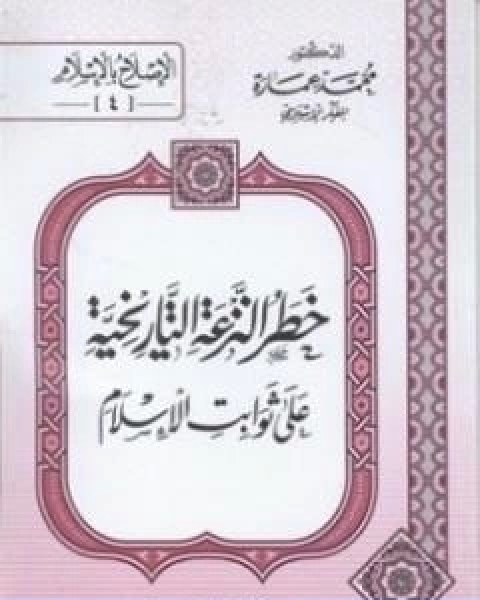 الدكتور
محمد عمارة
مفكر إسلامي
الإصلاح بالإسلام
[٤]
خطر النزعة التاريخية
على ثوابت الإسلام